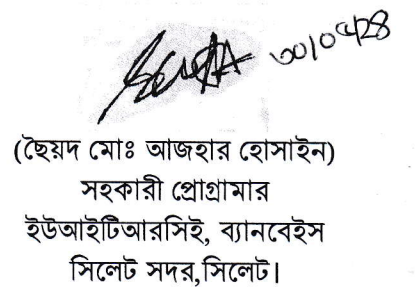 ৩০/০৫/২৪
(ছৈয়দ মোঃ আজহার হোসাইন)
সহকারী প্রোগ্রামার
ইউআইটিআরসিই, ব্যানবেইস
সিলেট সদর,সিলেট।